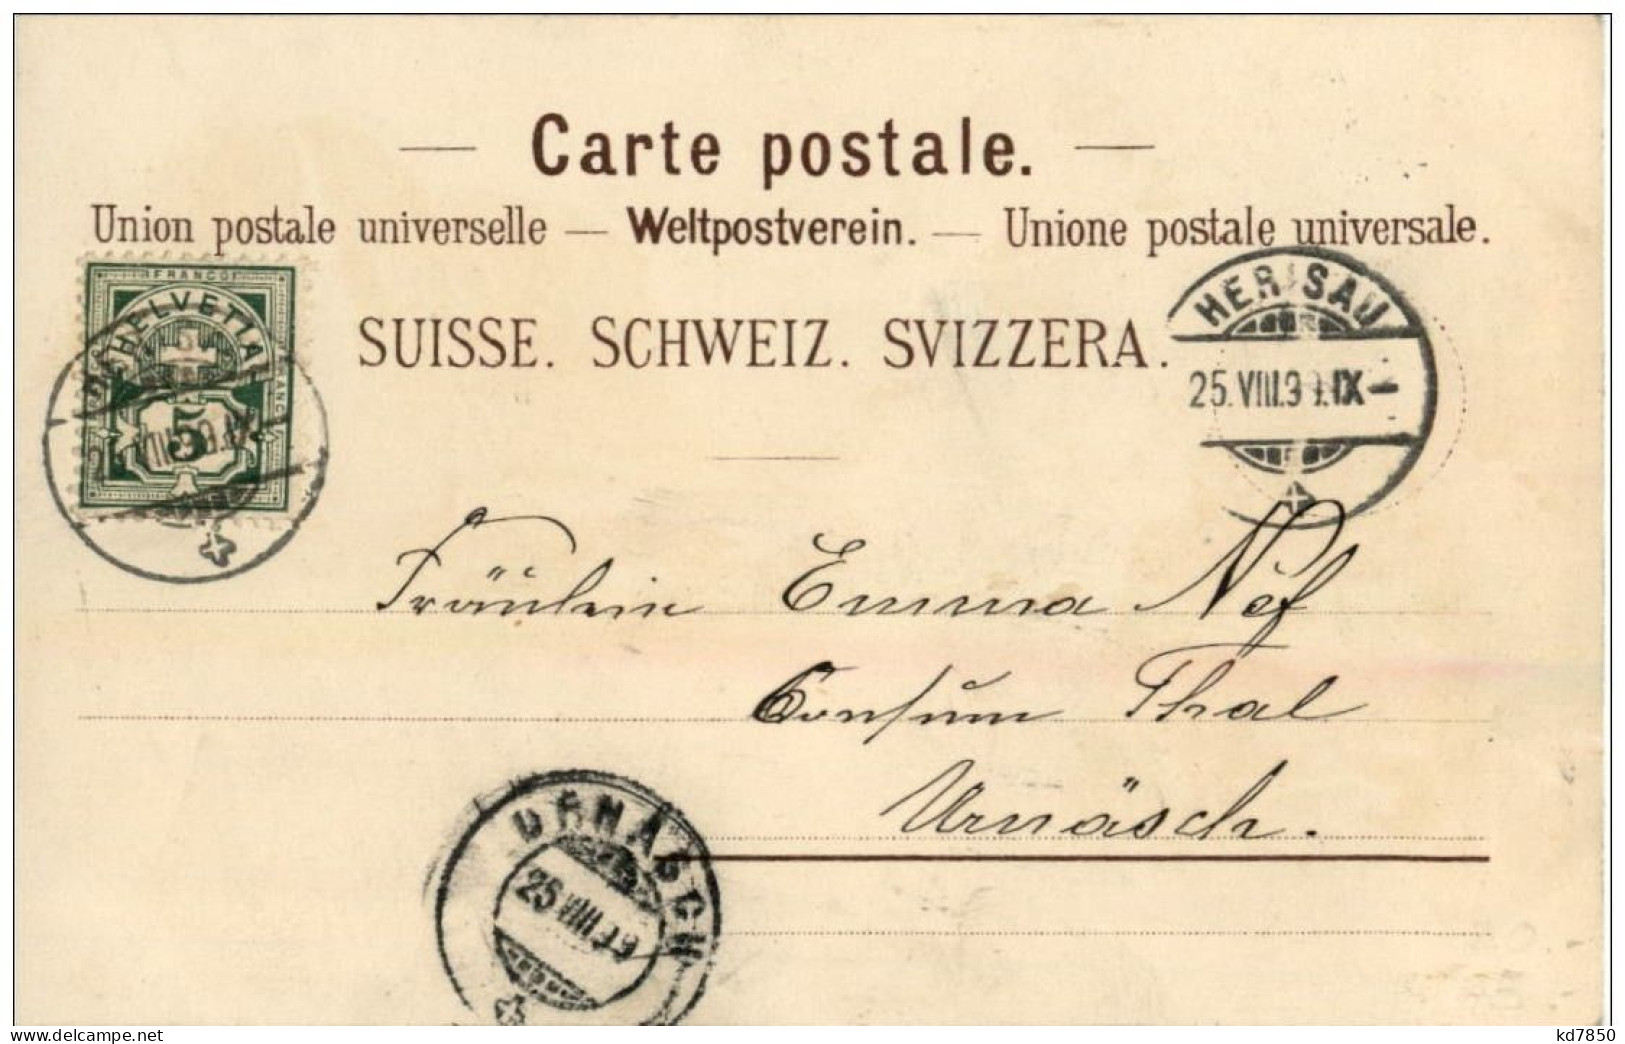 — Carte postale. —
Union postale universelle — Weltpostverein. — Unione postale universale.
SUISSE. SCHWEIZ. SVIZZERA.
FRANCO
HELVETIA
FRANCO
5
HERISAU
25.VIII.99.IX-
Fräulein Emma Nef
Consum Thal
Urnäsch.
URNÄSCH
25.VIII.99
delcampe.net
kd7850